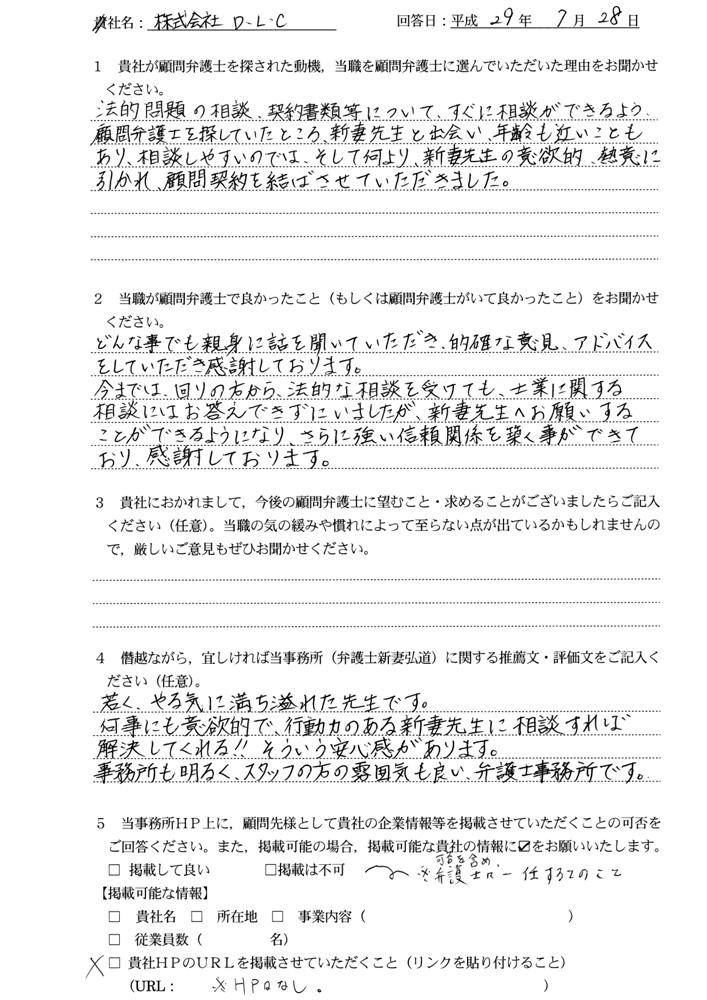 貴社名： 株式会社 D-L-C　回答日：平成 29年 7月 28日
1　貴社が顧問弁護士を探された動機，当職を顧問弁護士に選んでいただいた理由をお聞かせ
ください。
法的問題の相談、契約書類等について、すぐに相談ができるよう、
顧問弁護士を探していたところ、新妻先生と出会い、年齢も近いことも
あり、相談しやすいのでは、そして何より、新妻先生の意欲的、熱意に
引かれ、顧問契約を結ばさせていただきました。
2　当職が顧問弁護士で良かったこと（もしくは顧問弁護士がいて良かったこと）をお聞かせ
ください。
どんな事でも親身に話を聞いていただき、的確な意見、アドバイス
をしていただき感謝しております。
今までは、回りの方から、法的な相談を受けても、士業に関する
相談にはお答えできずにいましたが、新妻先生へお願いする
ことができるようになり、さらに強い信頼関係を築く事ができて
おり、感謝しております。
3　貴社におかれまして，今後の顧問弁護士に望むこと・求めることがございましたらご記入
ください（任意）。当職の気の緩みや慣れによって至らない点が出ているかもしれませんの
で，厳しいご意見もぜひお聞かせください。
4　僭越ながら，宜しければ当事務所（弁護士新妻弘道）に関する推薦文・評価文をご記入く
ださい（任意）。
若く、やる気に満ち溢れた先生です。
何事にも意欲的で、行動力のある新妻先生に相談すれば
解決してくれる!! そういう安心感があります。
事務所も明るく、スタッフの方の雰囲気も良い、弁護士事務所です。
5　当事務所ＨＰ上に，顧問先様として貴社の企業情報等を掲載させていただくことの可否を
ご回答ください。また，掲載可能の場合，掲載可能な貴社の情報に☑をお願いいたします。
□ 掲載して良い　□掲載は不可　可否を含め、
※弁護士に一任するとのこと
【掲載可能な情報】
□ 貴社名 □ 所在地 □ 事業内容（　）
□ 従業員数（　名）
× □ 貴社ＨＰのＵＲＬを掲載させていただくこと（リンクを貼り付けること）
（URL： ※HPはなし。　）